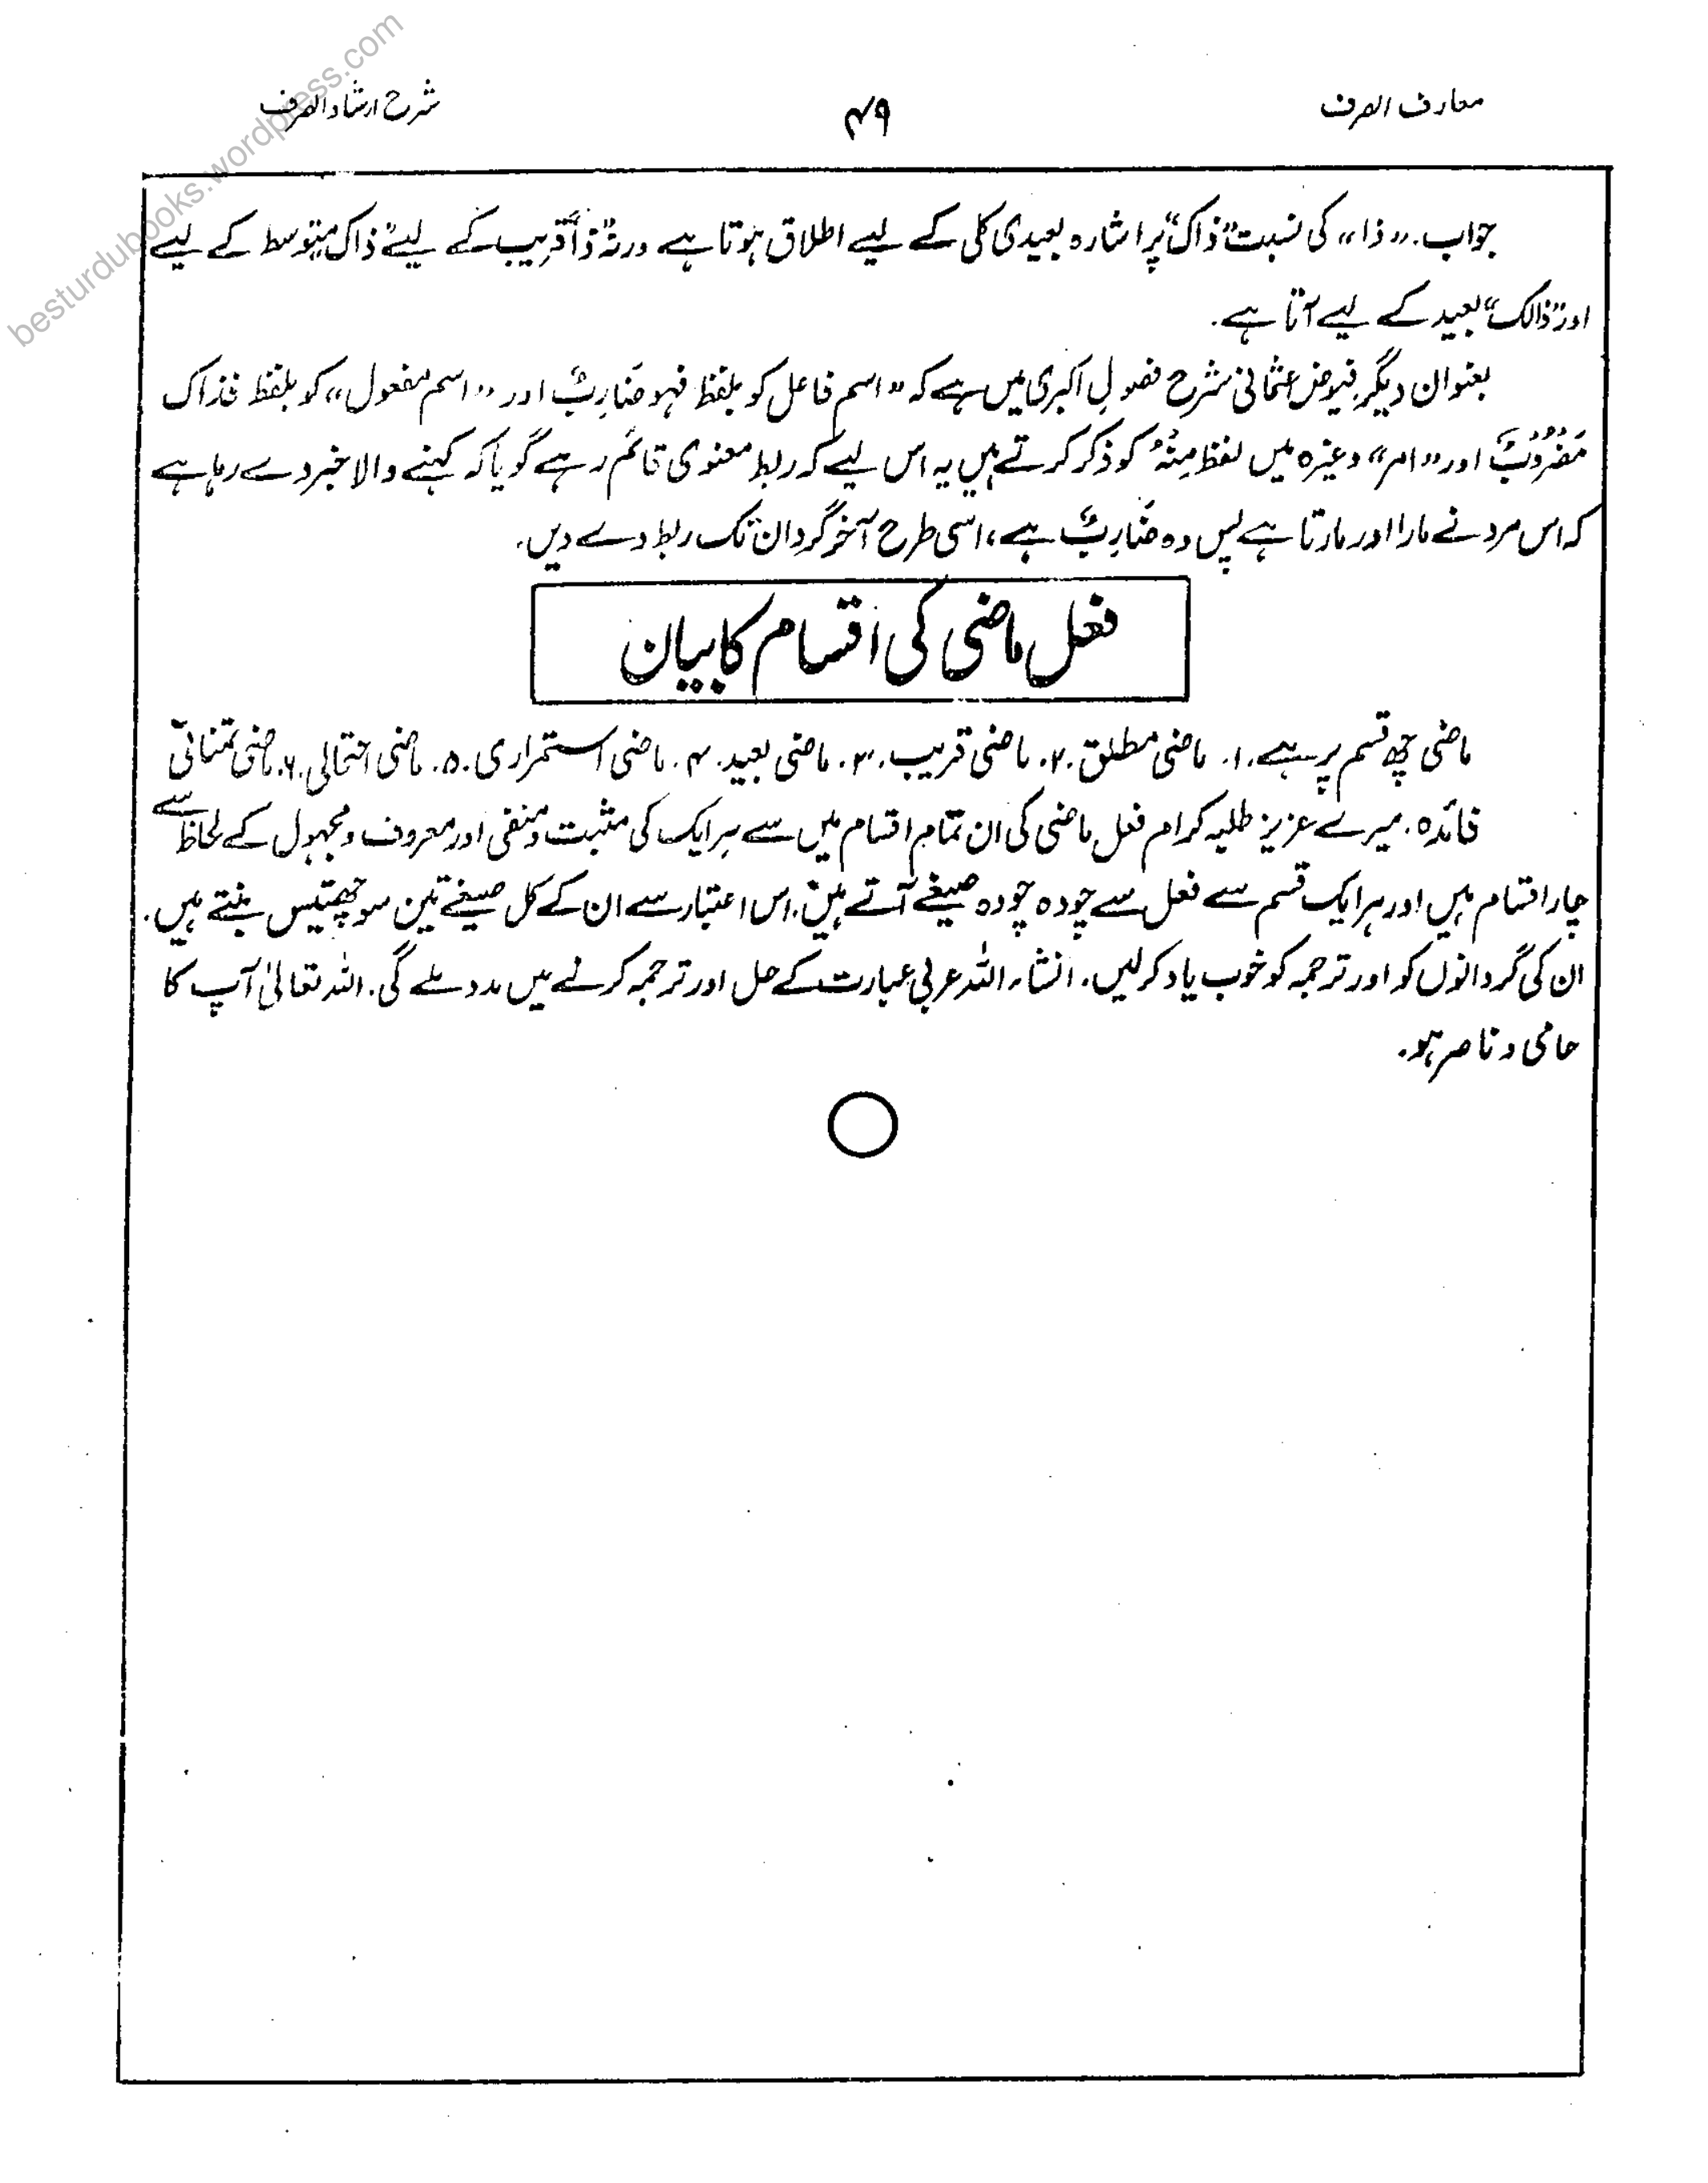 معارف الصرف
۴۹
شرح ارشاد الصرف
besturdubooks.wordpress.com
جواب. ”ذا“ کی نسبت ”ذاک“ پر اشارہ بعیدی کلی کے لیے اطلاق ہوتا ہے ورنہ ”ذا“ قریب کے لیے ”ذاک“ متوسط کے لیے
اور ”ذالک“ بعید کے لیے آتا ہے.
بعنوان دیگر فیوض عثمانی شرح فصول اکبری میں ہے کہ ”اسم فاعل کو بلفظ فہو ضَارِبٌ اور ”اسم مفعول“ کو بلفظ فذاک
مَضْرُوْبٌ اور ”امر“ وغیرہ میں لفظ مِنْہُ کو ذکر کرتے ہیں یہ اس لیے کہ ربط معنوی قائم رہے گویا کہ کہنے والا خبر دے رہا ہے
کہ اس مرد نے مارا اور مارتا ہے پس وہ ضَارِبٌ ہے، اسی طرح آخر گردان تک ربط دے دیں.
فعل ماضی کی اقسام کا بیان
ماضی چھ قسم پر ہے. ۱. ماضی مطلق. ۲. ماضی قریب. ۳. ماضی بعید. ۴. ماضی استمراری. ۵. ماضی احتمالی. ۶. ماضی تمنائی
فائدہ. میرے عزیز طلبہ کرام فعل ماضی کی ان تمام اقسام میں سے ہر ایک کی مثبت و منفی اور معروف و مجہول کے لحاظ سے
چار اقسام ہیں اور ہر ایک قسم سے فعل سے چودہ چودہ صیغے آتے ہیں. اس اعتبار سے ان کے کل صیغے تین سو چھتیس بنتے ہیں.
ان کی گردانوں کو اور ترجمہ کو خوب یاد کرلیں. انشاء اللہ عربی عبارت کے حل اور ترجمہ کرنے میں مدد ملے گی. اللہ تعالیٰ آپ کا
حامی و ناصر ہو.